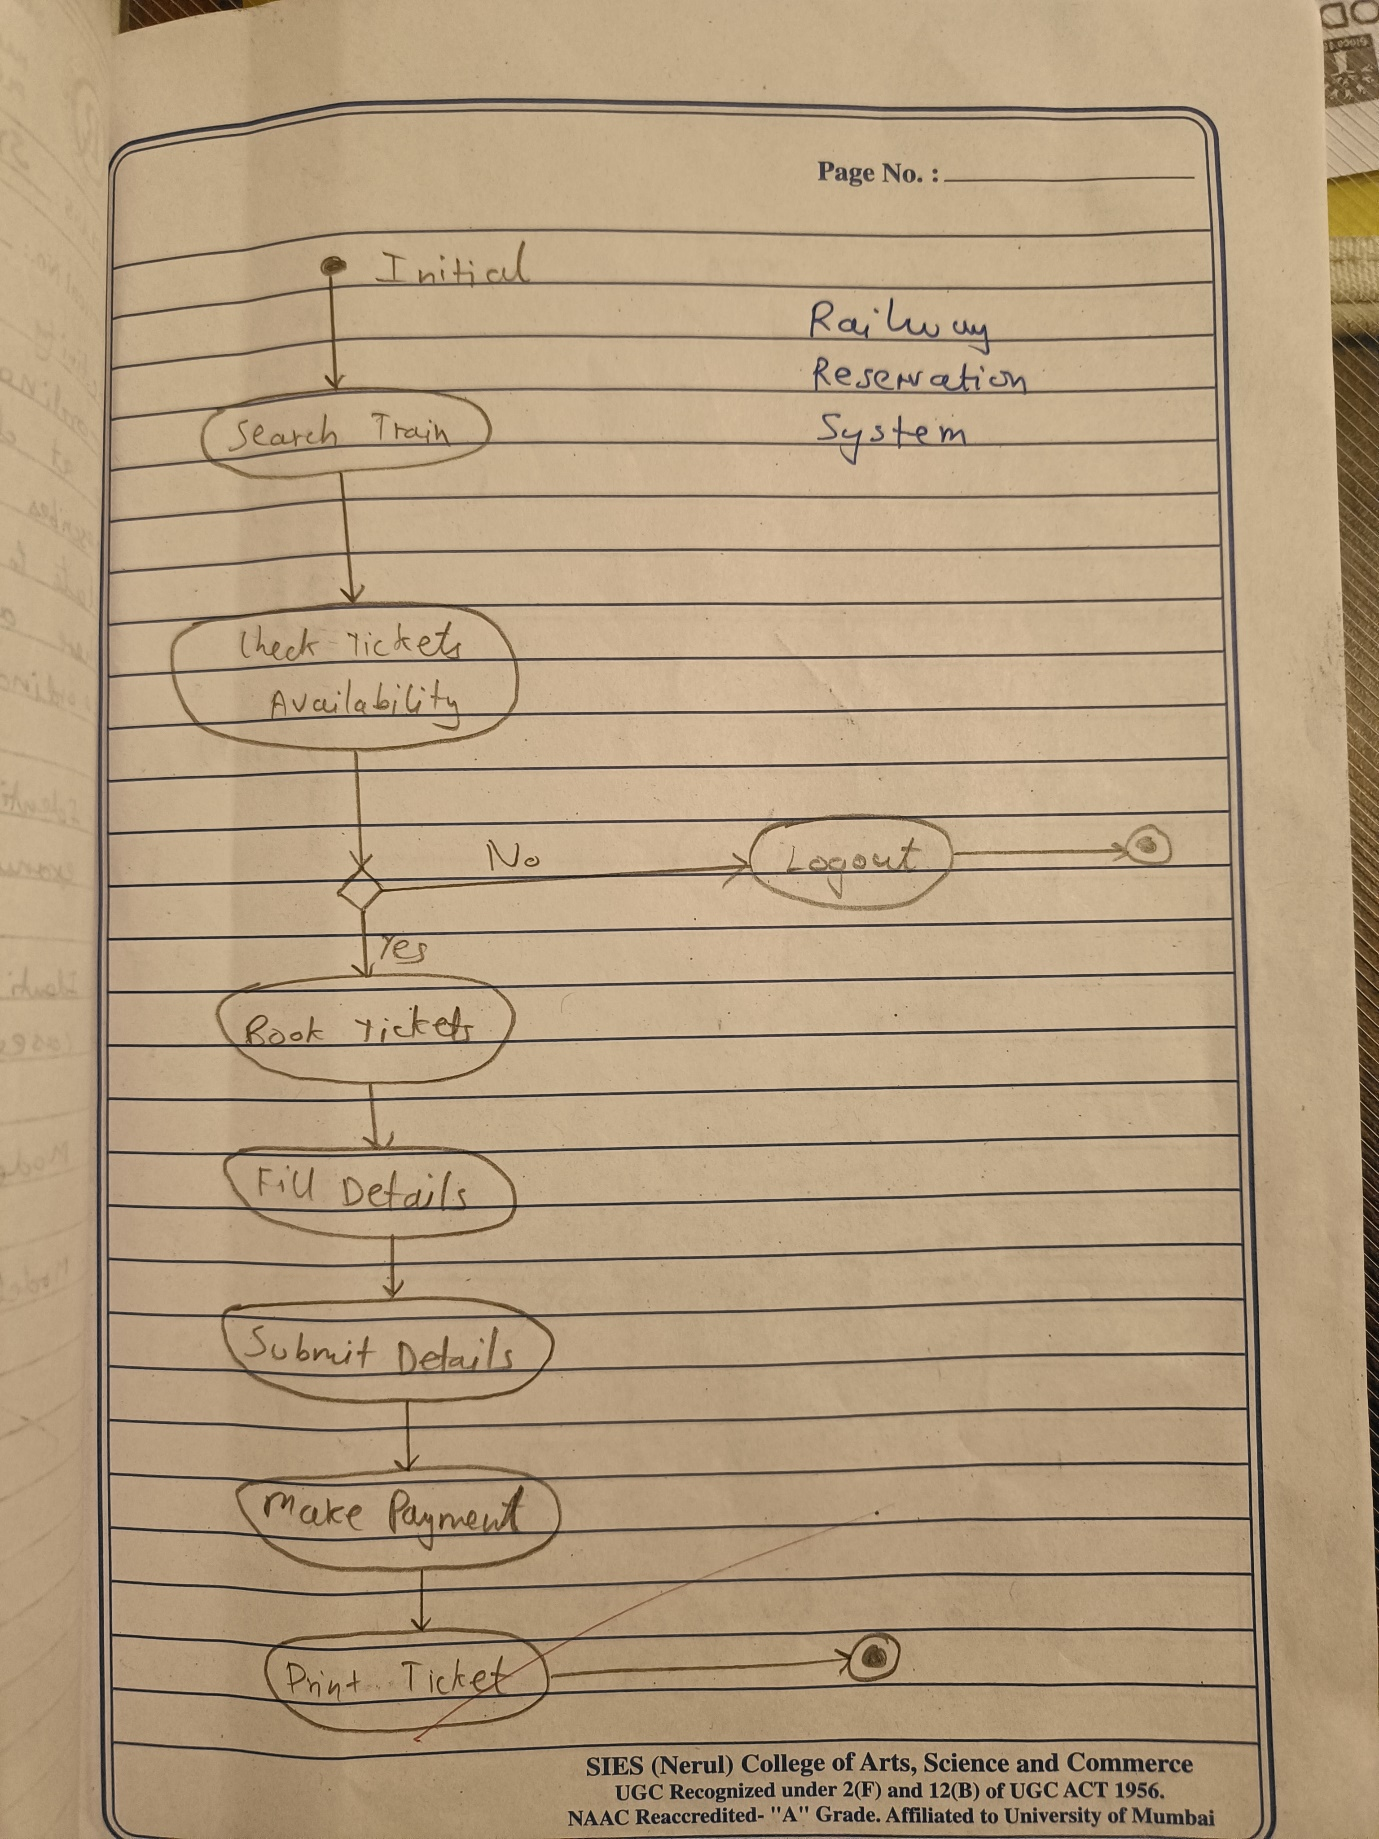 Page No. :
Initial
Railway
Reservation
System
Search Train
Check Tickets
Availability
No
Logout
Yes
Book Tickets
Fill Details
Submit Details
Make Payment
Print Ticket
SIES (Nerul) College of Arts, Science and Commerce
UGC Recognized under 2(F) and 12(B) of UGC ACT 1956.
NAAC Reaccredited- "A" Grade. Affiliated to University of Mumbai